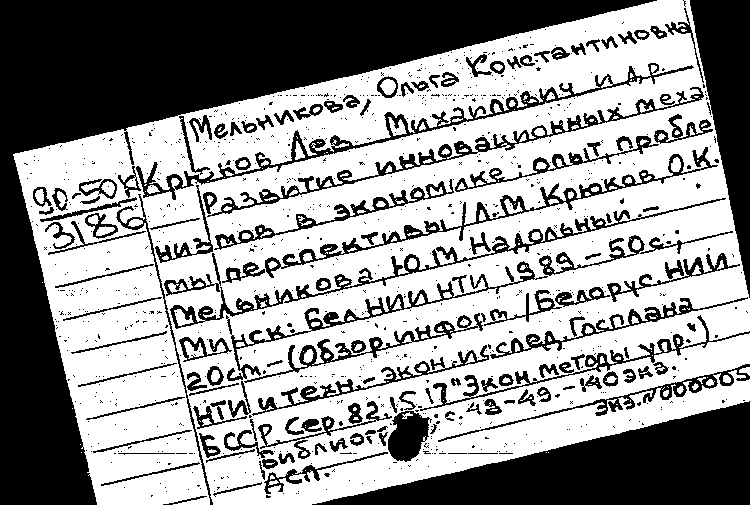 Мельникова, Ольга Константиновна
90-50К
3186
Крюков, Лев Михайлович и др.
Развитие инновационных меха
низмов в экономике: опыт, пробле
мы, перспективы / Л.М. Крюков, О.К.
Мельникова, Ю.М. Надольный. –
Минск: Бел НИИ НТИ, 1989. – 50 с.;
20 см. – (Обзор. информ. / Белорус. НИИ
НТИ и техн. – экон. исслед. Госплана
БССР. Сер. 82.15.17 "Экон. методы упр.")
Библиогр с. 43-49. – 140 экз.
экз. N000005
ДСП.